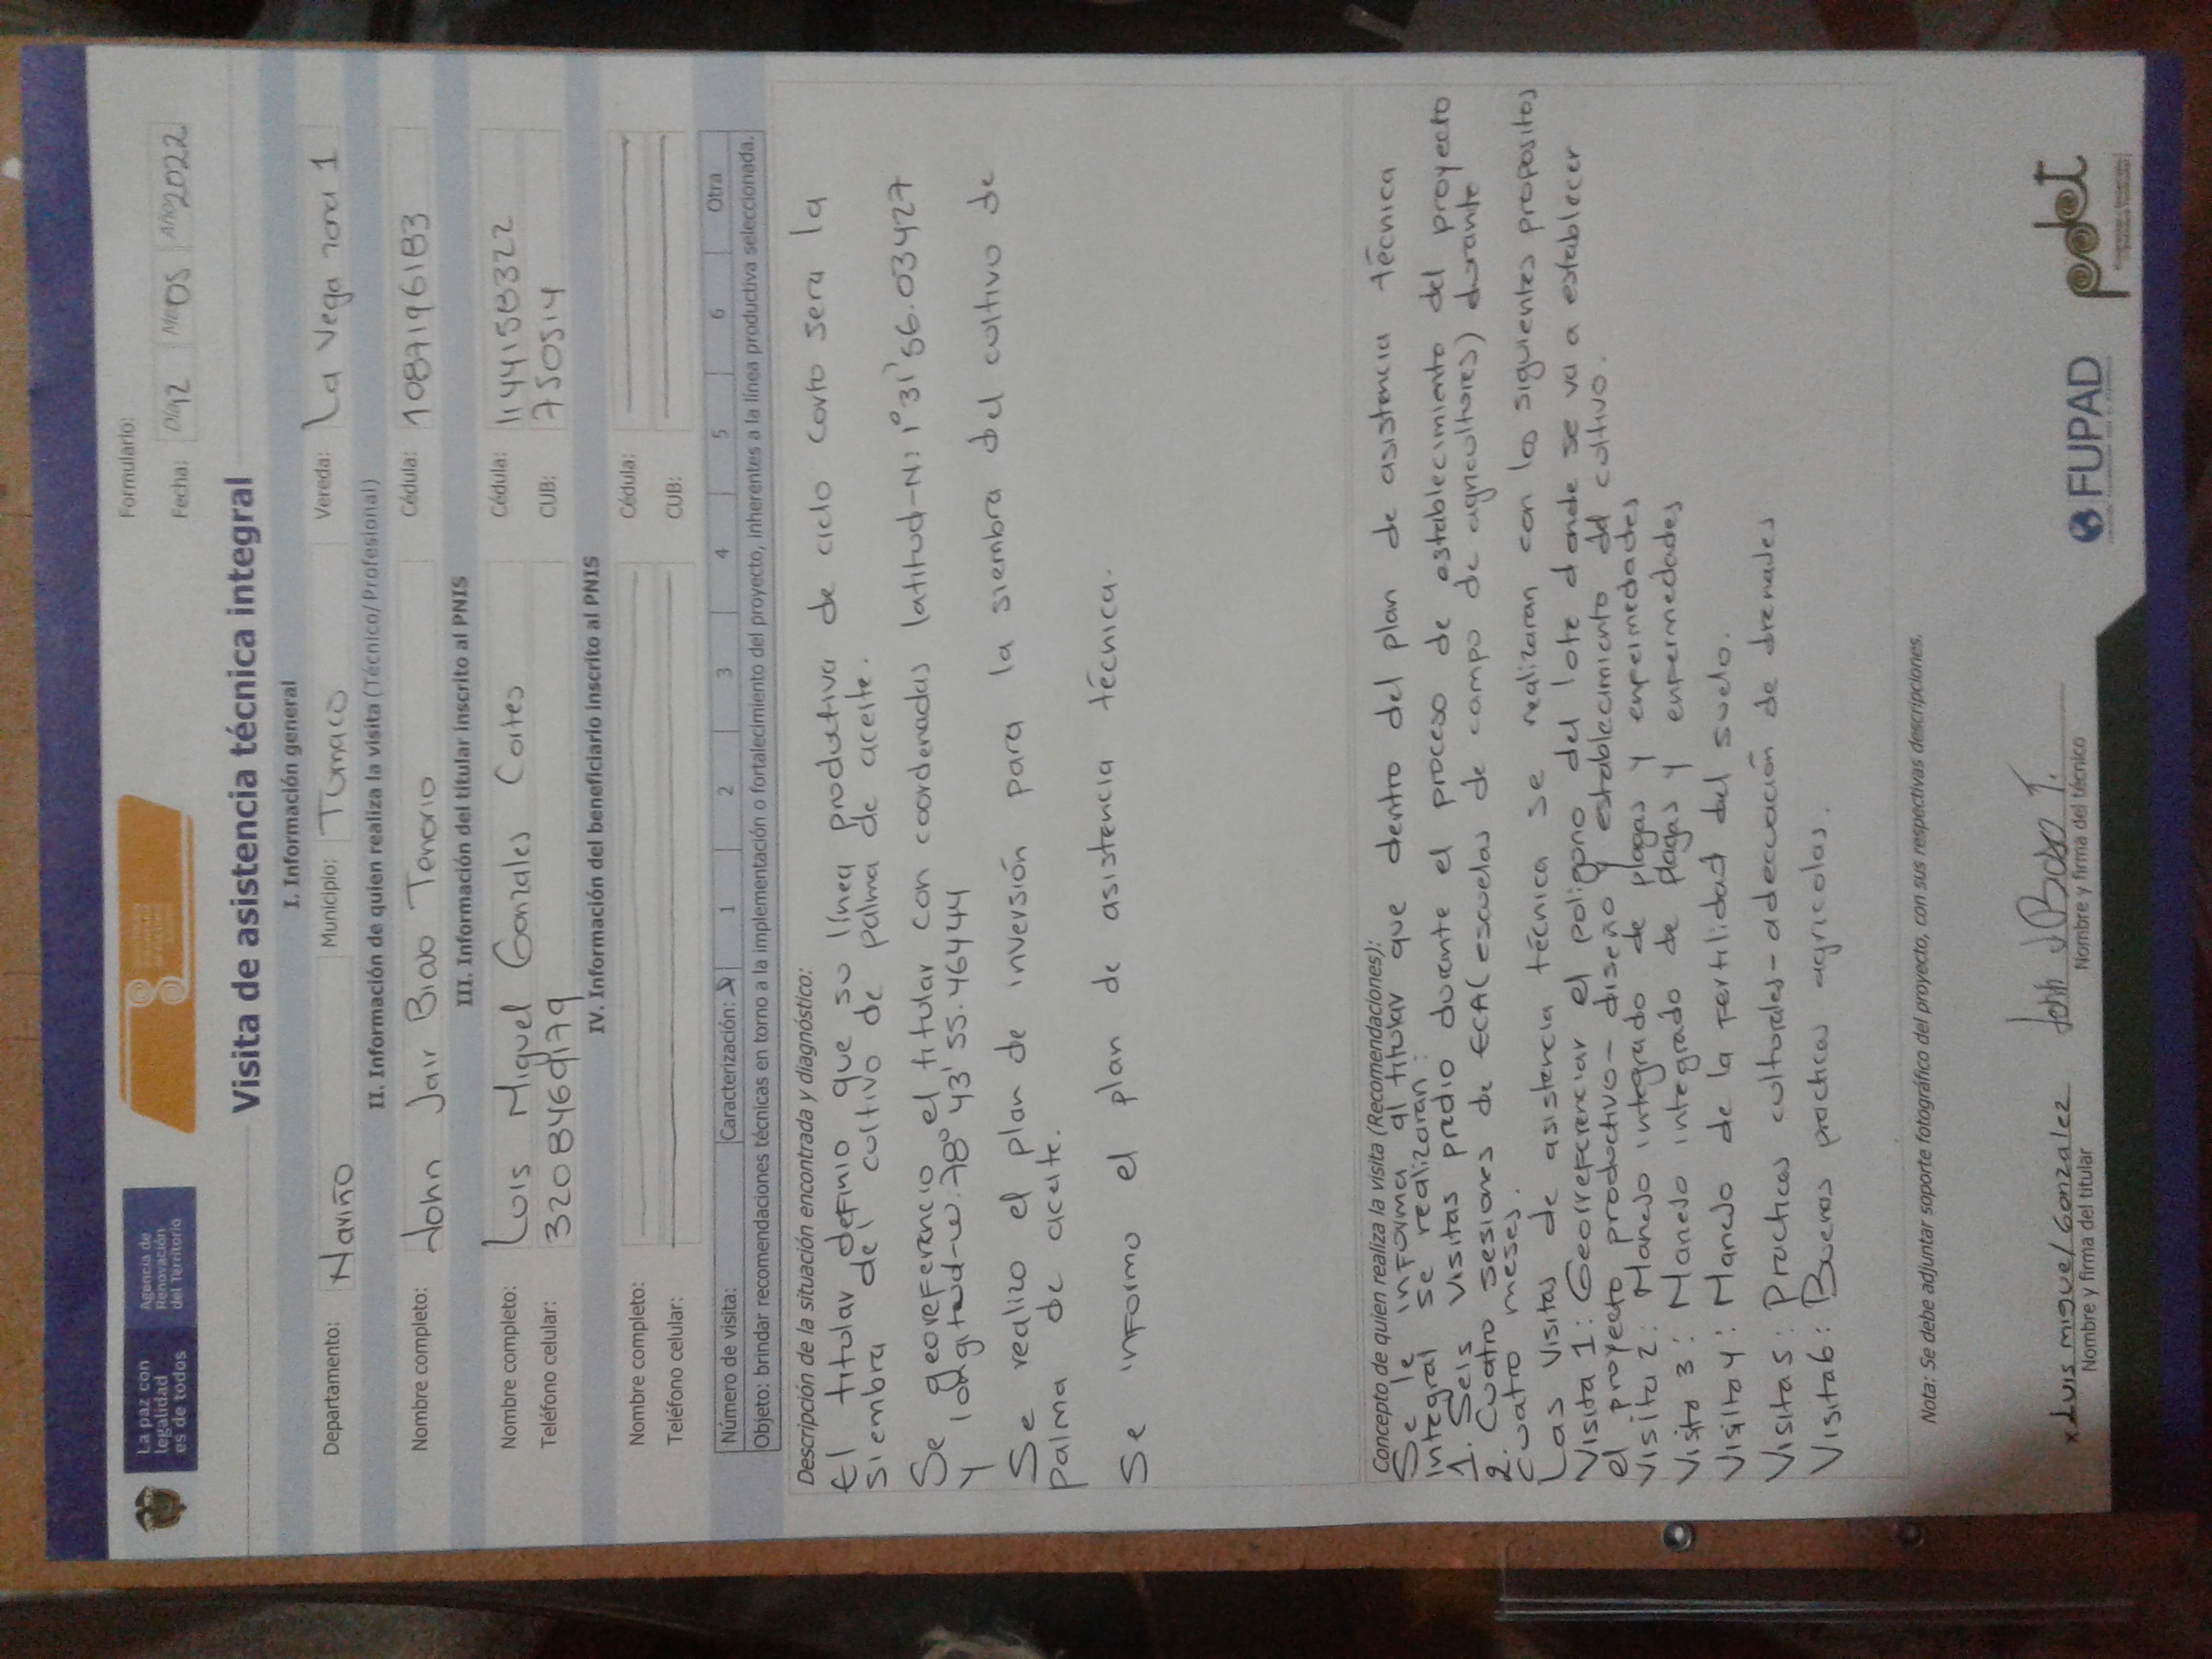 La paz con
legalidad
es de todos
Agencia de
Renovación
del Territorio
Formulario:
Fecha: Día 2 Mes 05 Año 2022
Visita de asistencia técnica integral
I. Información general
Departamento: Nariño Municipio: Tumaco Vereda: La Vega zona 1
II. Información de quien realiza la visita (Técnico/Profesional)
Nombre completo: John Jair Bias Tenorio Cédula: 1087196183
III. Información del titular inscrito al PNIS
Nombre completo: Luis Miguel Gonzales Cortes Cédula: 1144158322
Teléfono celular: 3208469179 CUB: 750514
IV. Información del beneficiario inscrito al PNIS
Nombre completo: Cédula:
Teléfono celular: CUB:
Número de visita: Caracterización: X 1 2 3 4 5 6 Otra
Objeto: brindar recomendaciones técnicas en torno a la implementación o fortalecimiento del proyecto, inherentes a la línea productiva seleccionada.
Descripción de la situación encontrada y diagnóstico:
El titular definio que su línea productiva de ciclo corto sera la
siembra del cultivo de palma de aceite.
Se georeferencio el titular con coordenadas latitud-N: 1° 31' 56.03427
y longitud-w. 78° 43' 55.46444
Se realizo el plan de inversión para la siembra del cultivo de
palma de aceite.
Se informo el plan de asistencia técnica.
Concepto de quien realiza la visita (Recomendaciones):
Se le informa al titular que dentro del plan de asistencia técnica
integral se realizaran:
1. Seis visitas predio durante el proceso de establecimiento del proyecto
2. Cuatro sesiones de ECA (escuelas de campo de agricultores) durante
cuatro meses.
Las visitas de asistencia técnica se realizaran con los siguientes propositos
Visita 1: Georreferenciar el poligono del lote donde se va a establecer
el proyecto productivo - diseño y establecimiento del cultivo.
Visita 2: Manejo integrado de plagas y enfermedades
Visita 3: Manejo integrado de plagas y enfermedades
Visita 4: Manejo de la fertilidad del suelo.
Visita 5: Practicas culturales - adecuación de drenades
Visita 6: Buenas practicas agricolas.
Nota: Se debe adjuntar soporte fotográfico del proyecto, con sus respectivas descripciones.
x Luis miguel Gonzalez
Nombre y firma del titular
John J Bias T.
Nombre y firma del técnico
FUPAD
pdet